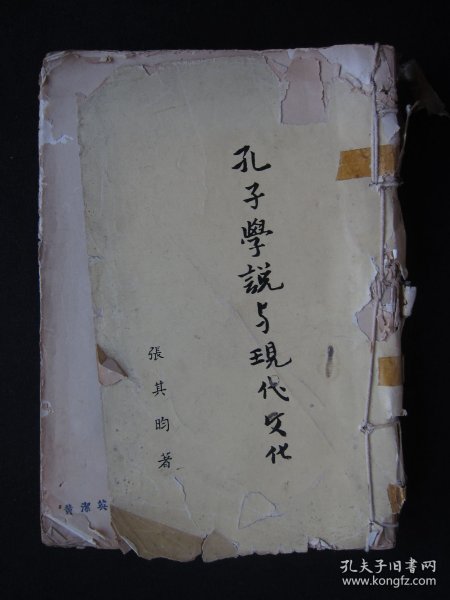 孔子學説与現代文化
張其昀著
黄潔英
孔夫子旧书网
www.kongfz.com